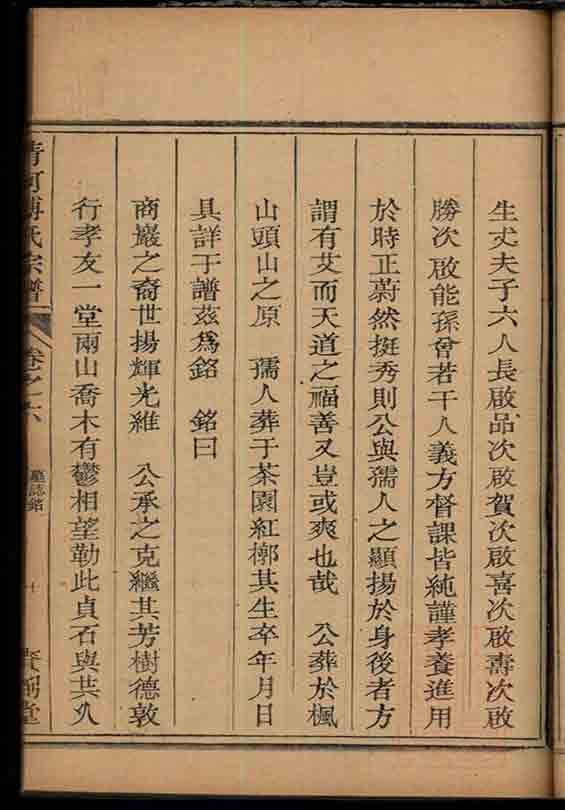 生丈夫子六人長啟品次啟賀次啟喜次啟壽次啟
勝次啟能孫曾若干人義方督課皆純謹孝養進用
於時正蔚然挺秀則公與孺人之顯揚於身後者方
謂有艾而天道之福善又豈或爽也哉　公葬於楓
山頭山之原　孺人葬于茶園紅槨其生卒年月日
具詳于譜茲爲銘　銘曰
商巖之裔世揚輝光維　公承之克繼其芳樹德敦
行孝友一堂兩山喬木有鬱相望勒此貞石與其久
清河傅氏宗譜
卷之六
墓誌銘
十